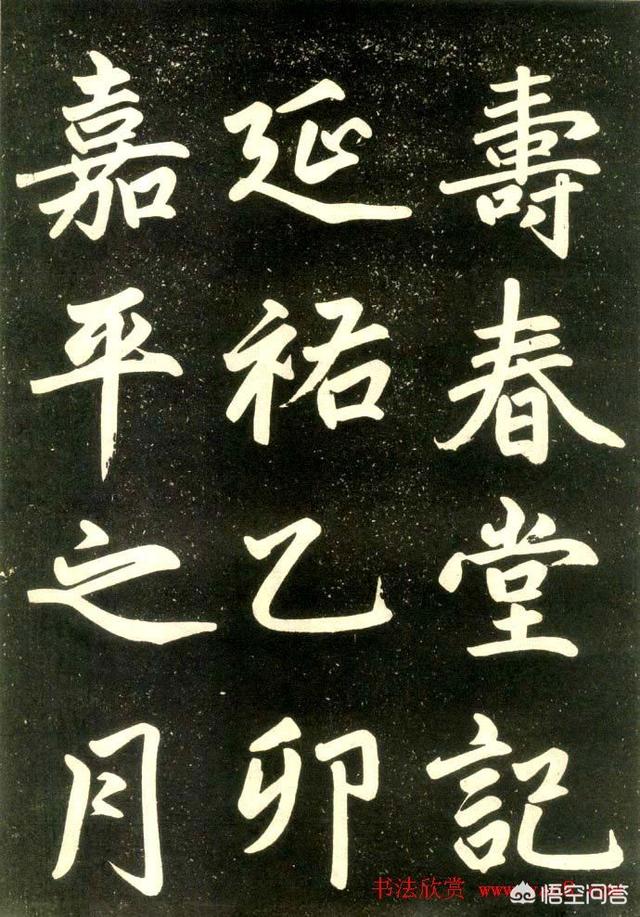 壽春堂記
延祐乙卯
嘉平之月
书法欣赏
悟空问答